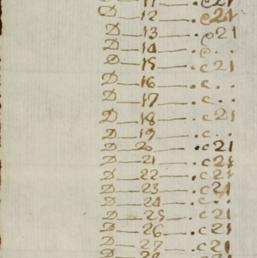 D—11—.c21
D—12—.c21
D—13—.c21
D—14—.c..
D—15—.c21
D—16—.c..
D—17—.c..
D—18—.c21
D—19—.c..
D—20—.c21
D—21—.c21
D—22—.c21
D—23—.c21
D—24—.c..
D—25—.c21
D—26—.c21
D—27—.c21
D—28—.c21